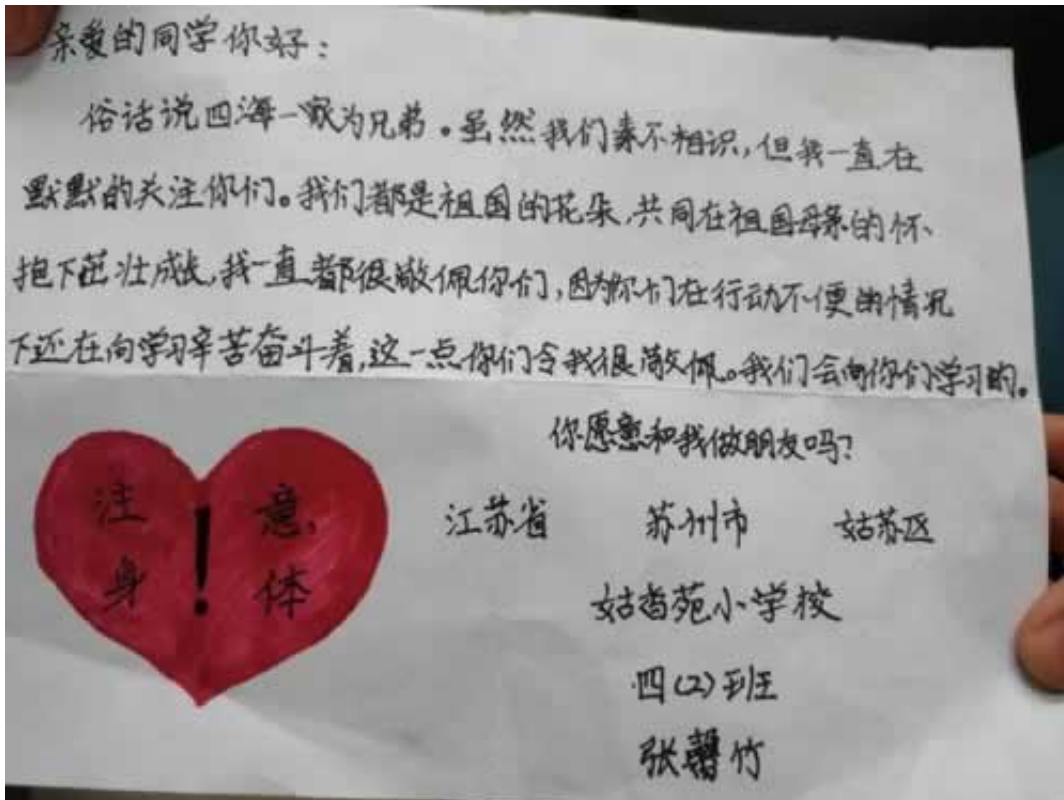 亲爱的同学你好：
俗话说四海一家为兄弟。虽然我们素不相识，但我一直在
默默的关注你们。我们都是祖国的花朵，共同在祖国母亲的怀
抱下茁壮成长，我一直都很敬佩你们，因为你们在行动不便的情况
下还在向学习辛苦奋斗着，这一点你们令我很敬佩。我们会向你们学习的。
你愿意和我做朋友吗？
注意！
身体
江苏省 苏州市 姑苏区
姑香苑小学校
四(2)班
张馨竹